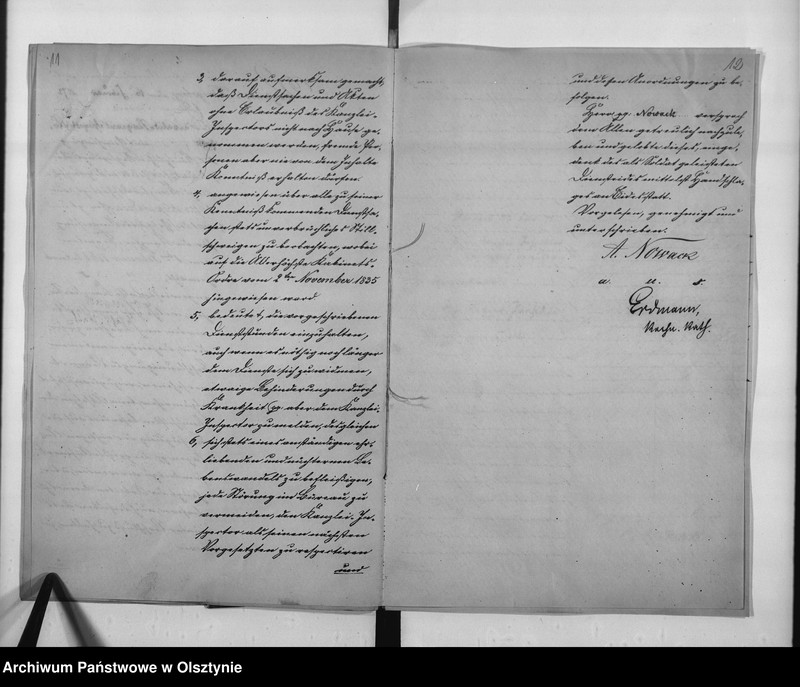 11
3, darauf aufmerksam gemacht,
daß Dienstsachen und Akten
ohne Erlaubniß des Kanzlei-
Inspectors nicht nach Hause ge-
nommen werden, fremde Per-
sonen aber nie von dem Inhalte
Kenntniß erhalten dürfen.
4, angewiesen über alle zu seiner
Kenntniß kommenden Dienstsa-
chen stets unverbrüchliches Still-
schweigen zu beobachten, wobei
auf die Allerhöchste Kabinets-
Ordre vom 2ten November 1835
hingewiesen ward
5, bedeutet, die vorgeschriebenen
Dienststunden einzuhalten,
auch wenn es nöthig noch länger
dem Dienste sich zu widmen,
etwaige Behinderungen durch
Krankheit pp aber dem Kanzlei-
Inspector zu melden, desgleichen
6, sich stets eines anständigen ehr-
liebenden und nüchternen Le-
benswandels zu befleißigen,
jede Störung im Bureau zu
vermeiden, den Kanzlei-In-
spector als seinen nächsten
Vorgesetzten zu respectiren
und
12
und dessen Anordnungen zu be-
folgen.
Herr pp. Nowack versprach
dem Allen getreulich nachzule-
ben und gelobte dieses, einge-
denk des als Soldat geleisteten
Diensteides mittelst Handschla-
ges an Eidesstatt.
Vorgelesen, genehmigt und
unterschrieben.
A. Nowack
a. u. s.
Erdmann,
Rechn. Rath.
Archiwum Państwowe w Olsztynie